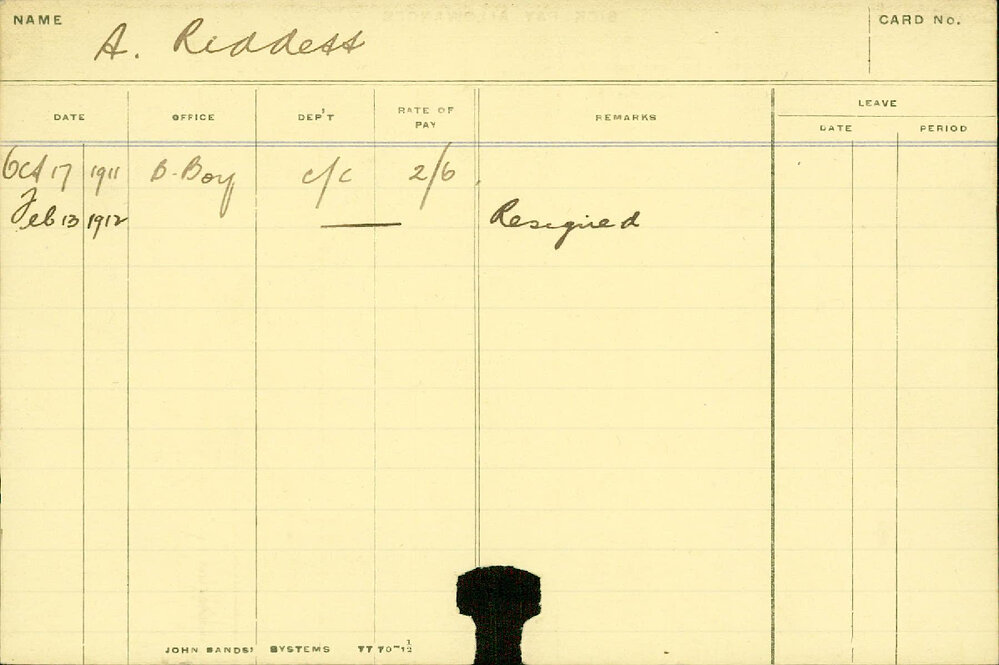 NAME A. Riddett CARD No.
DATE OFFICE DEP'T RATE OF PAY REMARKS LEAVE DATE PERIOD
Oct 17 1911 B-Boy c/c 2/6
Feb 13 1912 — Resigned
JOHN SANDS' SYSTEMS 7770-1/12